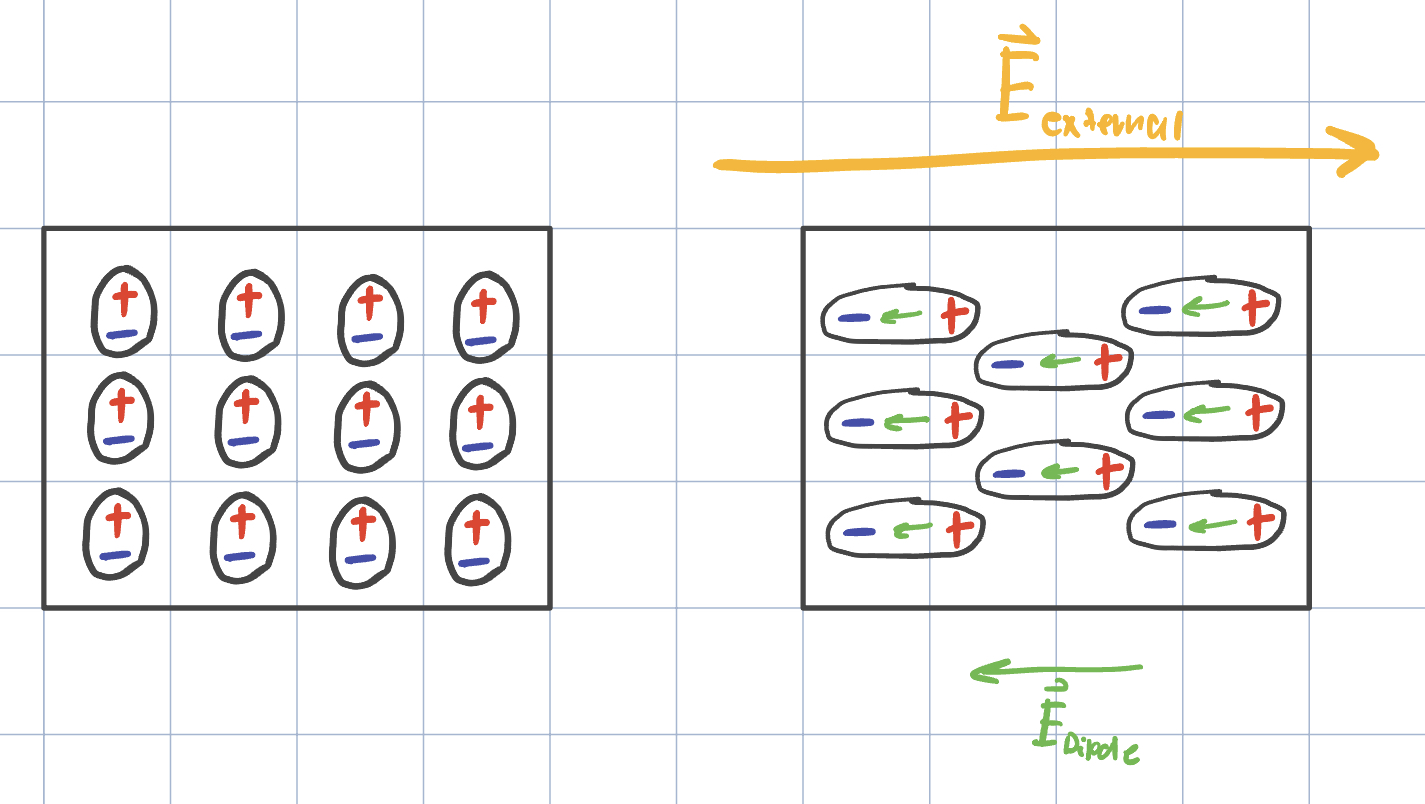 E⃗ external
+ + + +
− − − −
+ + + +
− − − −
+ + + +
− − − −
− + − +
− +
− + − +
− +
− + − +
E⃗ Dipole